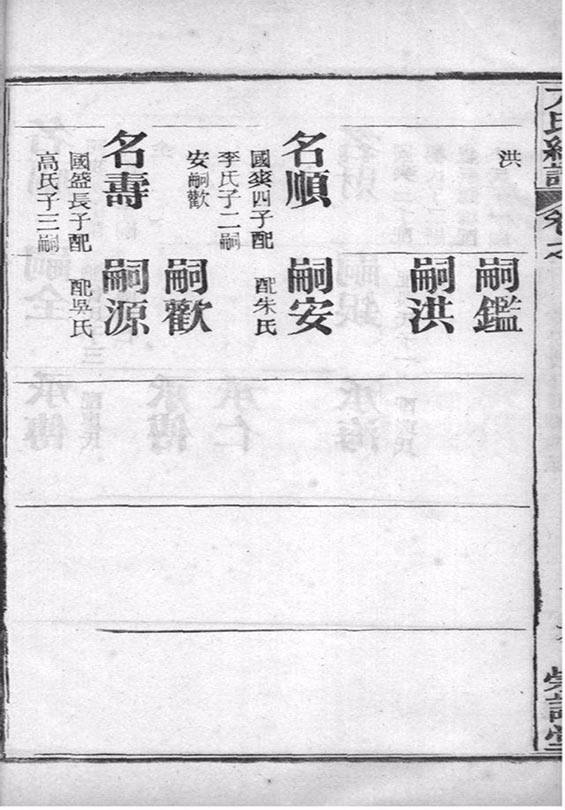 洪
名順
國爽四子配
李氏子二嗣
安嗣歡
名壽
國盛長子配
高氏子三嗣
嗣鑑
嗣洪
嗣安
配朱氏
嗣歡
嗣源
配吳氏